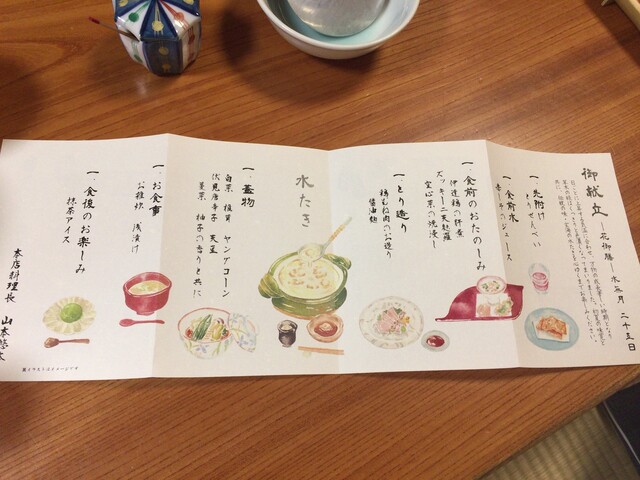 御献立 ー花御膳ー 水無月 二十五日
一、先附け
とりせんべい
一、食前水
赤しそのジュース
一、食前のおたのしみ
伊達鶏の
ズッキーニ天麩羅
空心菜の浸し
一、とり造り
鶏むね肉のお造り
醤油麹
水たき
一、蓋物
白菜 椎茸 ヤングコーン
伏見唐辛子 天豆
柚子の香りと共に
一、お食事
お雑炊 浅漬け
一、食後のお楽しみ
抹茶アイス
本店料理長 山本
※イラストはイメージです